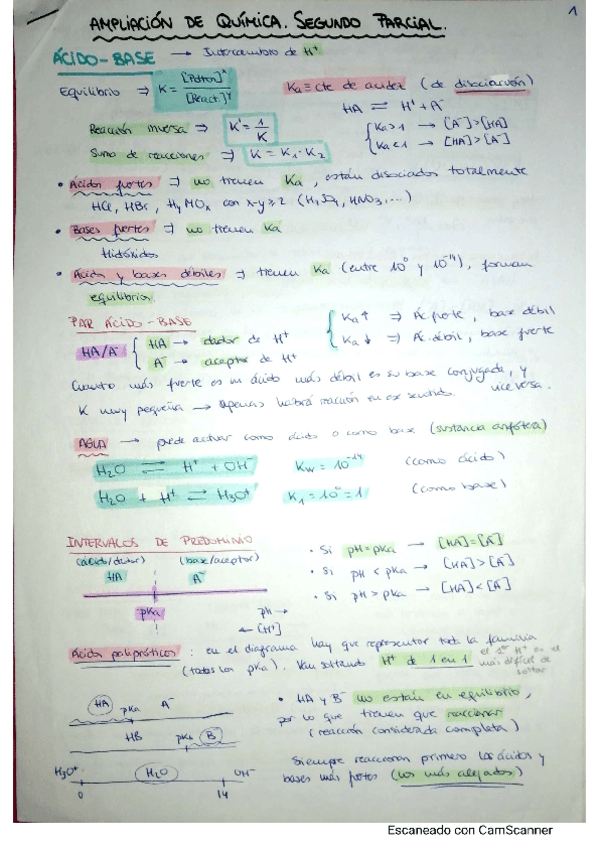 1
AMPLIACIÓN DE QUÍMICA. SEGUNDO PARCIAL.
ÁCIDO-BASE → Intercambio de H⁺
Equilibrio ⇒ K = [Potron]ˣ / [React.]ʸ
Ka ≡ cte de acidez (de disociación)
HA ⇌ H⁺ + A⁻
Reacción inversa ⇒ K' = 1/K
Ka>1 → [A⁻]>[HA]
Ka<1 → [HA]>[A⁻]
Suma de reacciones ⇒ K = K₁·K₂
• Ácidos fuertes ⇒ no tienen Ka, están disociados totalmente
HCl, HBr, HyMOx con x-y≥2 (H₂SO₄, HNO₃,...)
• Bases fuertes ⇒ no tienen Ka
Hidróxidos
• Ácidos y bases débiles ⇒ tienen Ka (entre 10⁰ y 10⁻¹⁴), forman
equilibrios.
PAR ÁCIDO-BASE
Ka↑ ⇒ Ác. fuerte, base débil
Ka↓ ⇒ Ác. débil, base fuerte
HA/A⁻
HA → dador de H⁺
A⁻ → aceptor de H⁺
Cuanto más fuerte es un ácido más débil es su base conjugada, y
viceversa.
K muy pequeña → Apenas habrá reacción en ese sentido.
AGUA → puede actuar como ácido o como base (sustancia anfótera)
H₂O ⇌ H⁺ + OH⁻ Kw = 10⁻¹⁴ (como ácido)
H₂O + H⁺ ⇌ H₃O⁺ K₁ = 10⁰ = 1 (como base)
INTERVALOS DE PREDOMINIO
(ácido/dador) (base/aceptor)
HA A⁻
pKa
ph →
← [H⁺]
• Si pH=pKa → [HA]=[A⁻]
• Si pH < pKa → [HA]>[A⁻]
• Si pH > pKa → [HA]<[A⁻]
Ácidos polipróticos : en el diagrama hay que representar toda la familia
(todos los pKa). Van soltando H⁺ de 1 en 1
el 1er H⁺ es el
más difícil de
soltar
HA pKa A⁻
HB pKb B⁻
H₃O⁺ H₂O OH⁻
0 14
• HA y B⁻ no están en equilibrio,
por lo que tienen que reaccionar
(reacción considerada completa)
Siempre reaccionan primero los ácidos y
bases más fuertes (los más alejados)
Escaneado con CamScanner